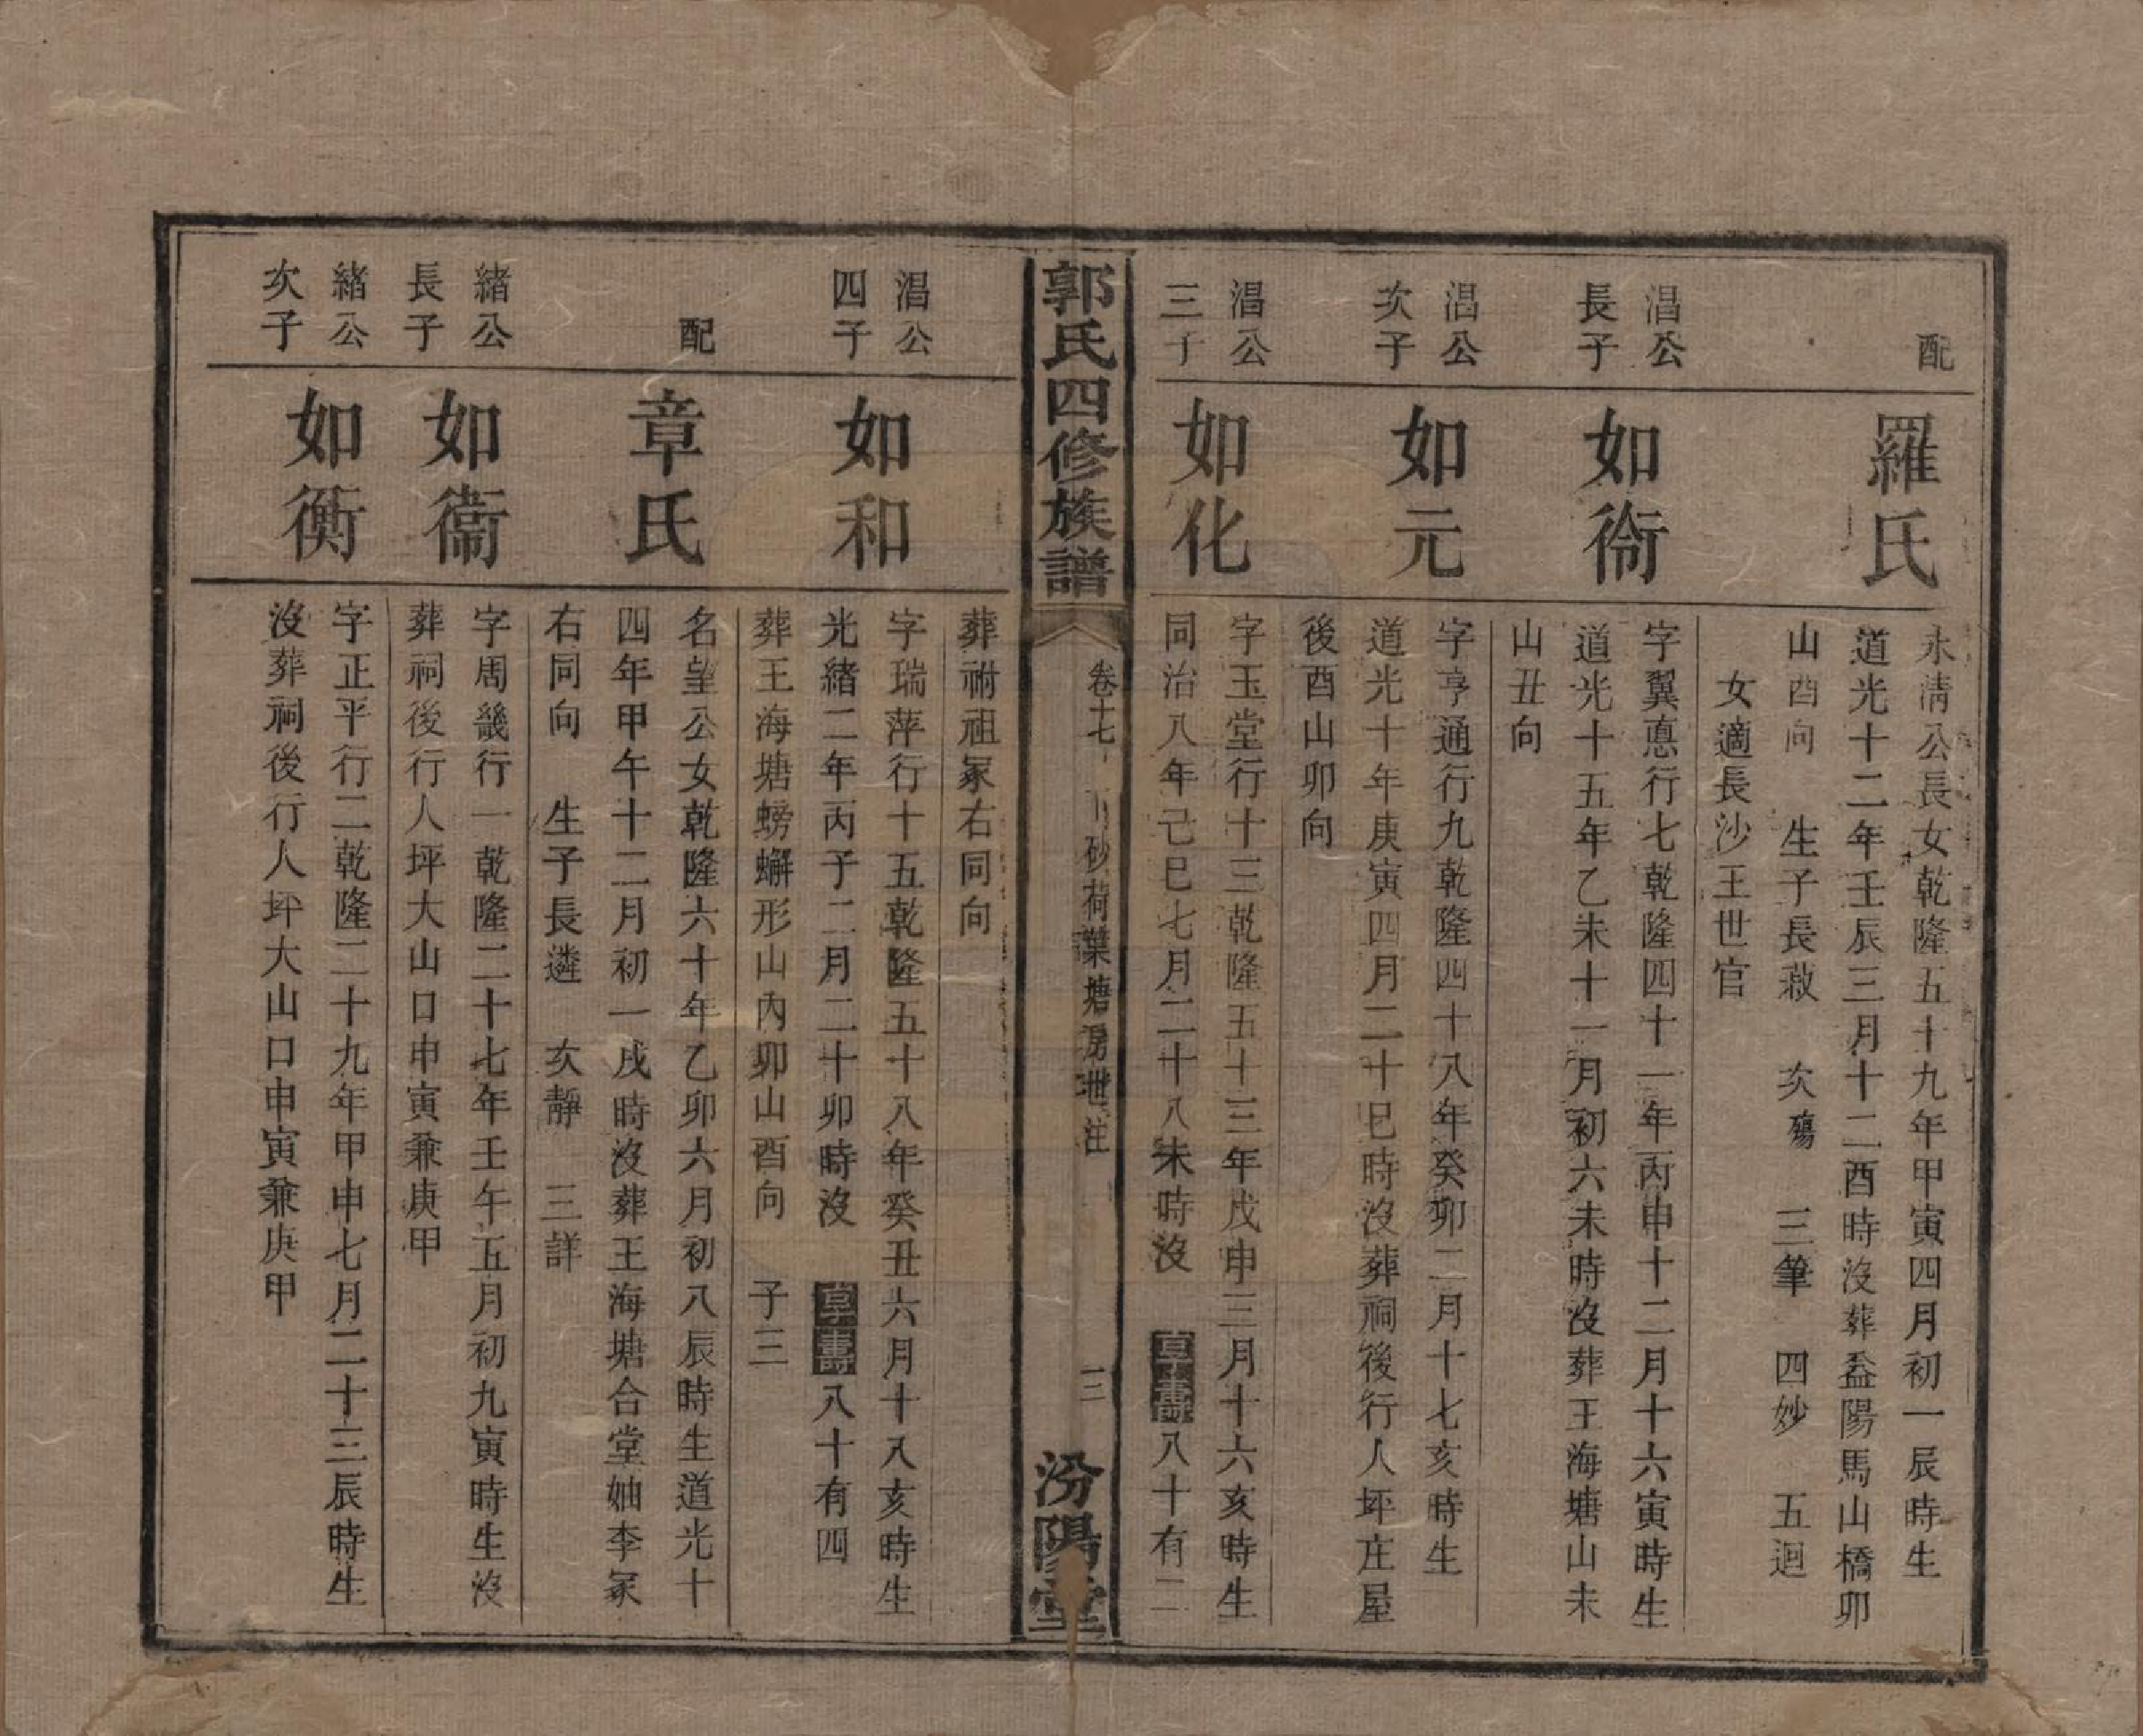 配
羅氏
永淸公長女乾隆五十九年甲寅四月初一辰時生
道光十二年壬辰三月十二酉時沒葬益陽馬山橋卯
山酉向 生子長菽 次殤 三筆 四妙 五迴
女適長沙王世官
淐公
長子
如衜
字翼悳行七乾隆四十一年丙申十二月十六寅時生
道光十五年乙未十一月初六未時沒葬王海塘山未
山丑向
淐公
次子
如元
字亨通行九乾隆四十八年癸卯二月十七亥時生
道光十年庚寅四月二十巳時沒葬祠後行人坪庄屋
後酉山卯向
淐公
三子
如化
字玉堂行十三乾隆五十三年戊申三月十六亥時生
同治八年己巳七月二十八未時沒 享壽八十有二
郭氏四修族譜
卷十七 下砂荷葉塘房世注
三
汾陽堂
葬祔祖冢右同向
淐公
四子
如和
字瑞萍行十五乾隆五十八年癸丑六月十八亥時生
光緒二年丙子二月二十卯時沒 享壽八十有四
葬王海塘螃蠏形山內卯山酉向 子三
配
章氏
名望公女乾隆六十年乙卯六月初八辰時生道光十
四年甲午十二月初一戌時沒葬王海塘合堂妯李冢
右同向 生子長遴 次靜 三詳
緒公
長子
如衞
字周畿行一乾隆二十七年壬午五月初九寅時生沒
葬祠後行人坪大山口申寅兼庚甲
緒公
次子
如衡
字正平行二乾隆二十九年甲申七月二十三辰時生
沒葬祠後行人坪大山口申寅兼庚甲